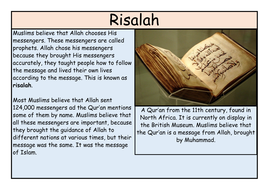 Risalah
Muslims believe that Allah chooses His
messengers. These messengers are called
prophets. Allah chose his messengers
because they brought His messengers
accurately, they taught people how to follow
the message and lived their own lives
according to the message. This is known as
risalah.
Most Muslims believe that Allah sent
124,000 messengers ad the Qur'an mentions
some of them by name. Muslims believe that
all these messengers are important, because
they brought the guidance of Allah to
different nations at various times, but their
message was the same. It was the message
of Islam.
A Qur'an from the 11th century, found in
North Africa. It is currently on display in
the British Museum. Muslims believe that
the Qur'an is a message from Allah, brought
by Muhammad.